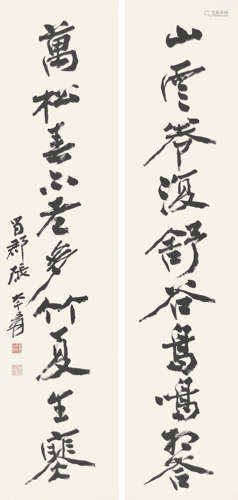 山雲卷復舒谷鳥鳴答
萬松春不老多竹夏生寒
蜀郡張大千爰